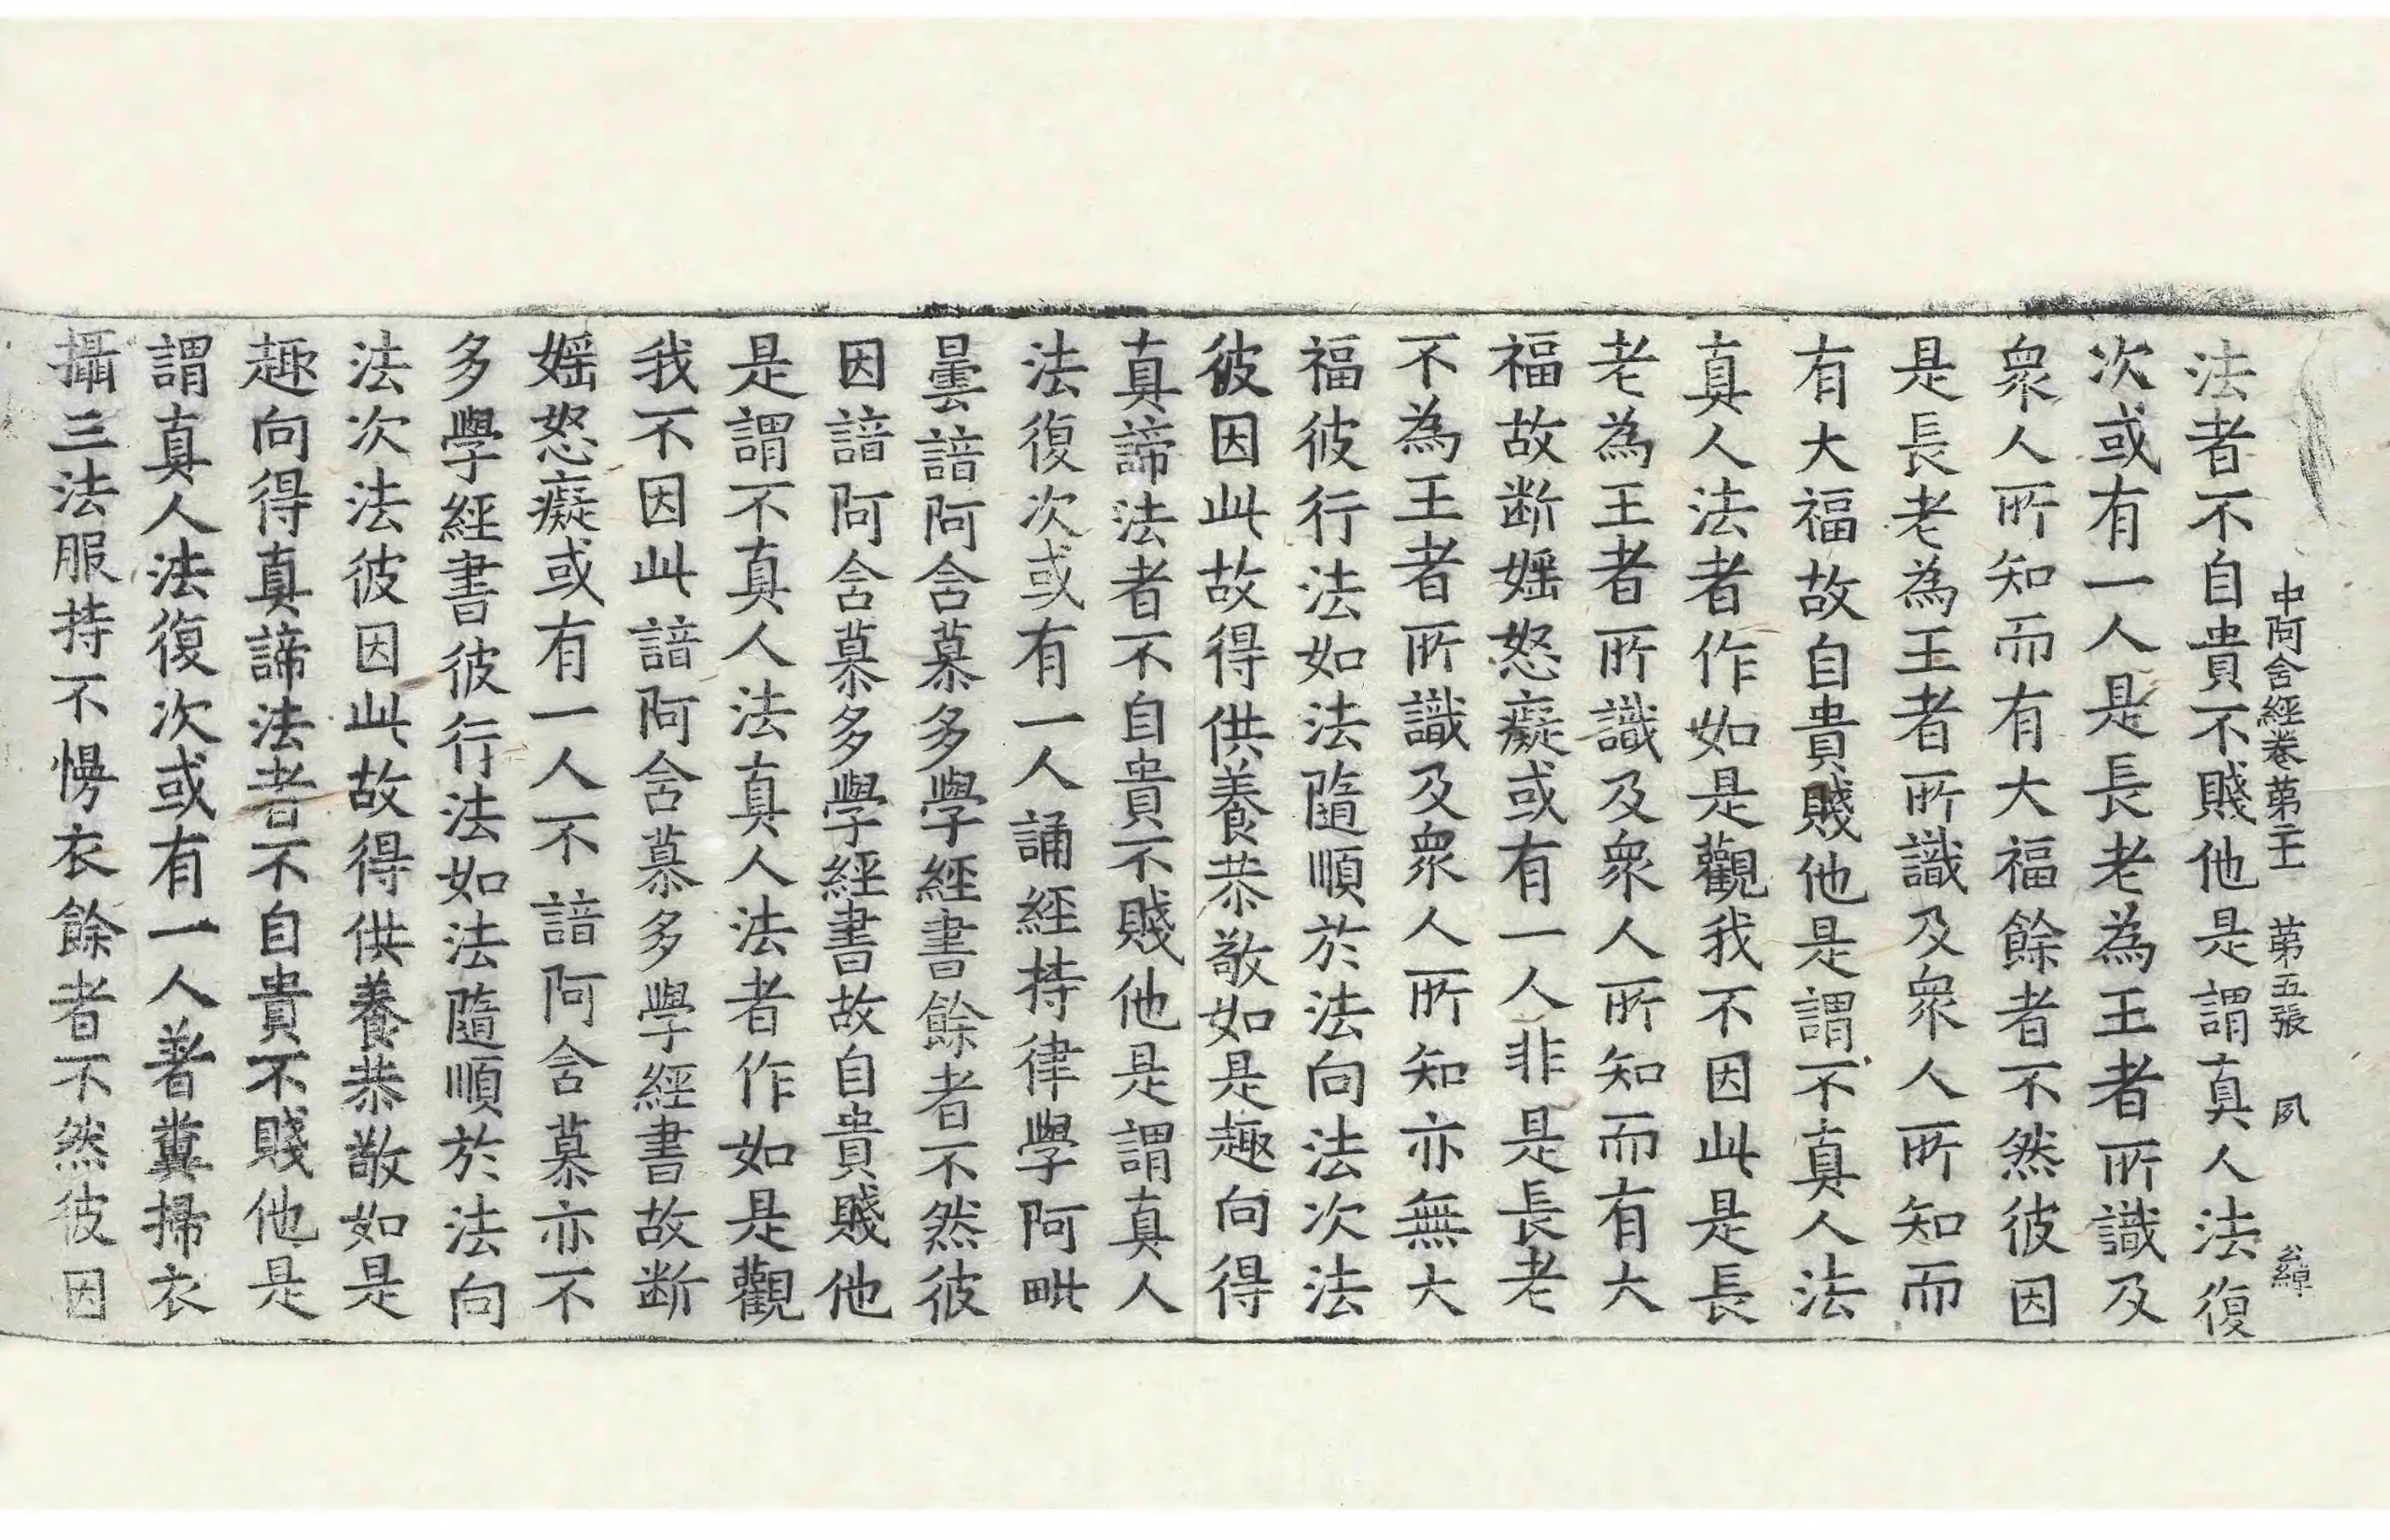 中阿含經卷第二十一 第五張 夙
法者不自貴不賤他是謂真人法復
次或有一人是長老為王者所識及
眾人所知而有大福餘者不然彼因
是長老為王者所識及眾人所知而
有大福故自貴賤他是謂不真人法
真人法者作如是觀我不因此是長
老為王者所識及眾人所知而有大
福故断婬怒癡或有一人非是長老
不為王者所識及眾人所知亦無大
福彼行法如法隨順於法向法次法
彼因此故得供養恭敬如是趣向得
真諦法者不自貴不賤他是謂真人
法復次或有一人誦經持律學阿毗
曇諳阿含慕多學經書餘者不然彼
因諳阿含慕多學經書故自貴賤他
是謂不真人法真人法者作如是觀
我不因此諳阿含慕多學經書故断
婬怒癡或有一人不諳阿含慕亦不
多學經書彼行法如法隨順於法向
法次法彼因此故得供養恭敬如是
趣向得真諦法者不自貴不賤他是
謂真人法復次或有一人著糞掃衣
攝三法服持不慢衣餘者不然彼因